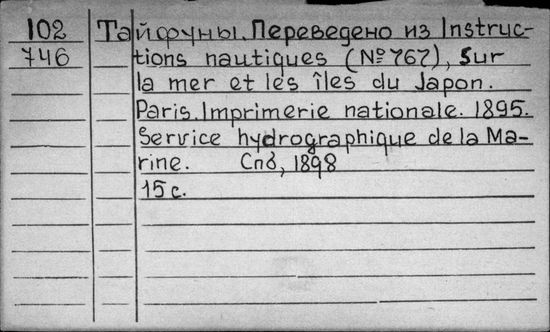 102 Тайфуны. Переведено из Instruc-
746 tions nautiques (№ 767), Sur
la mer et les îles du Japon.
Paris. Imprimerie nationale. 1895.
Service hydrographique de la Ma-
rine. Спб, 1898
15 с.